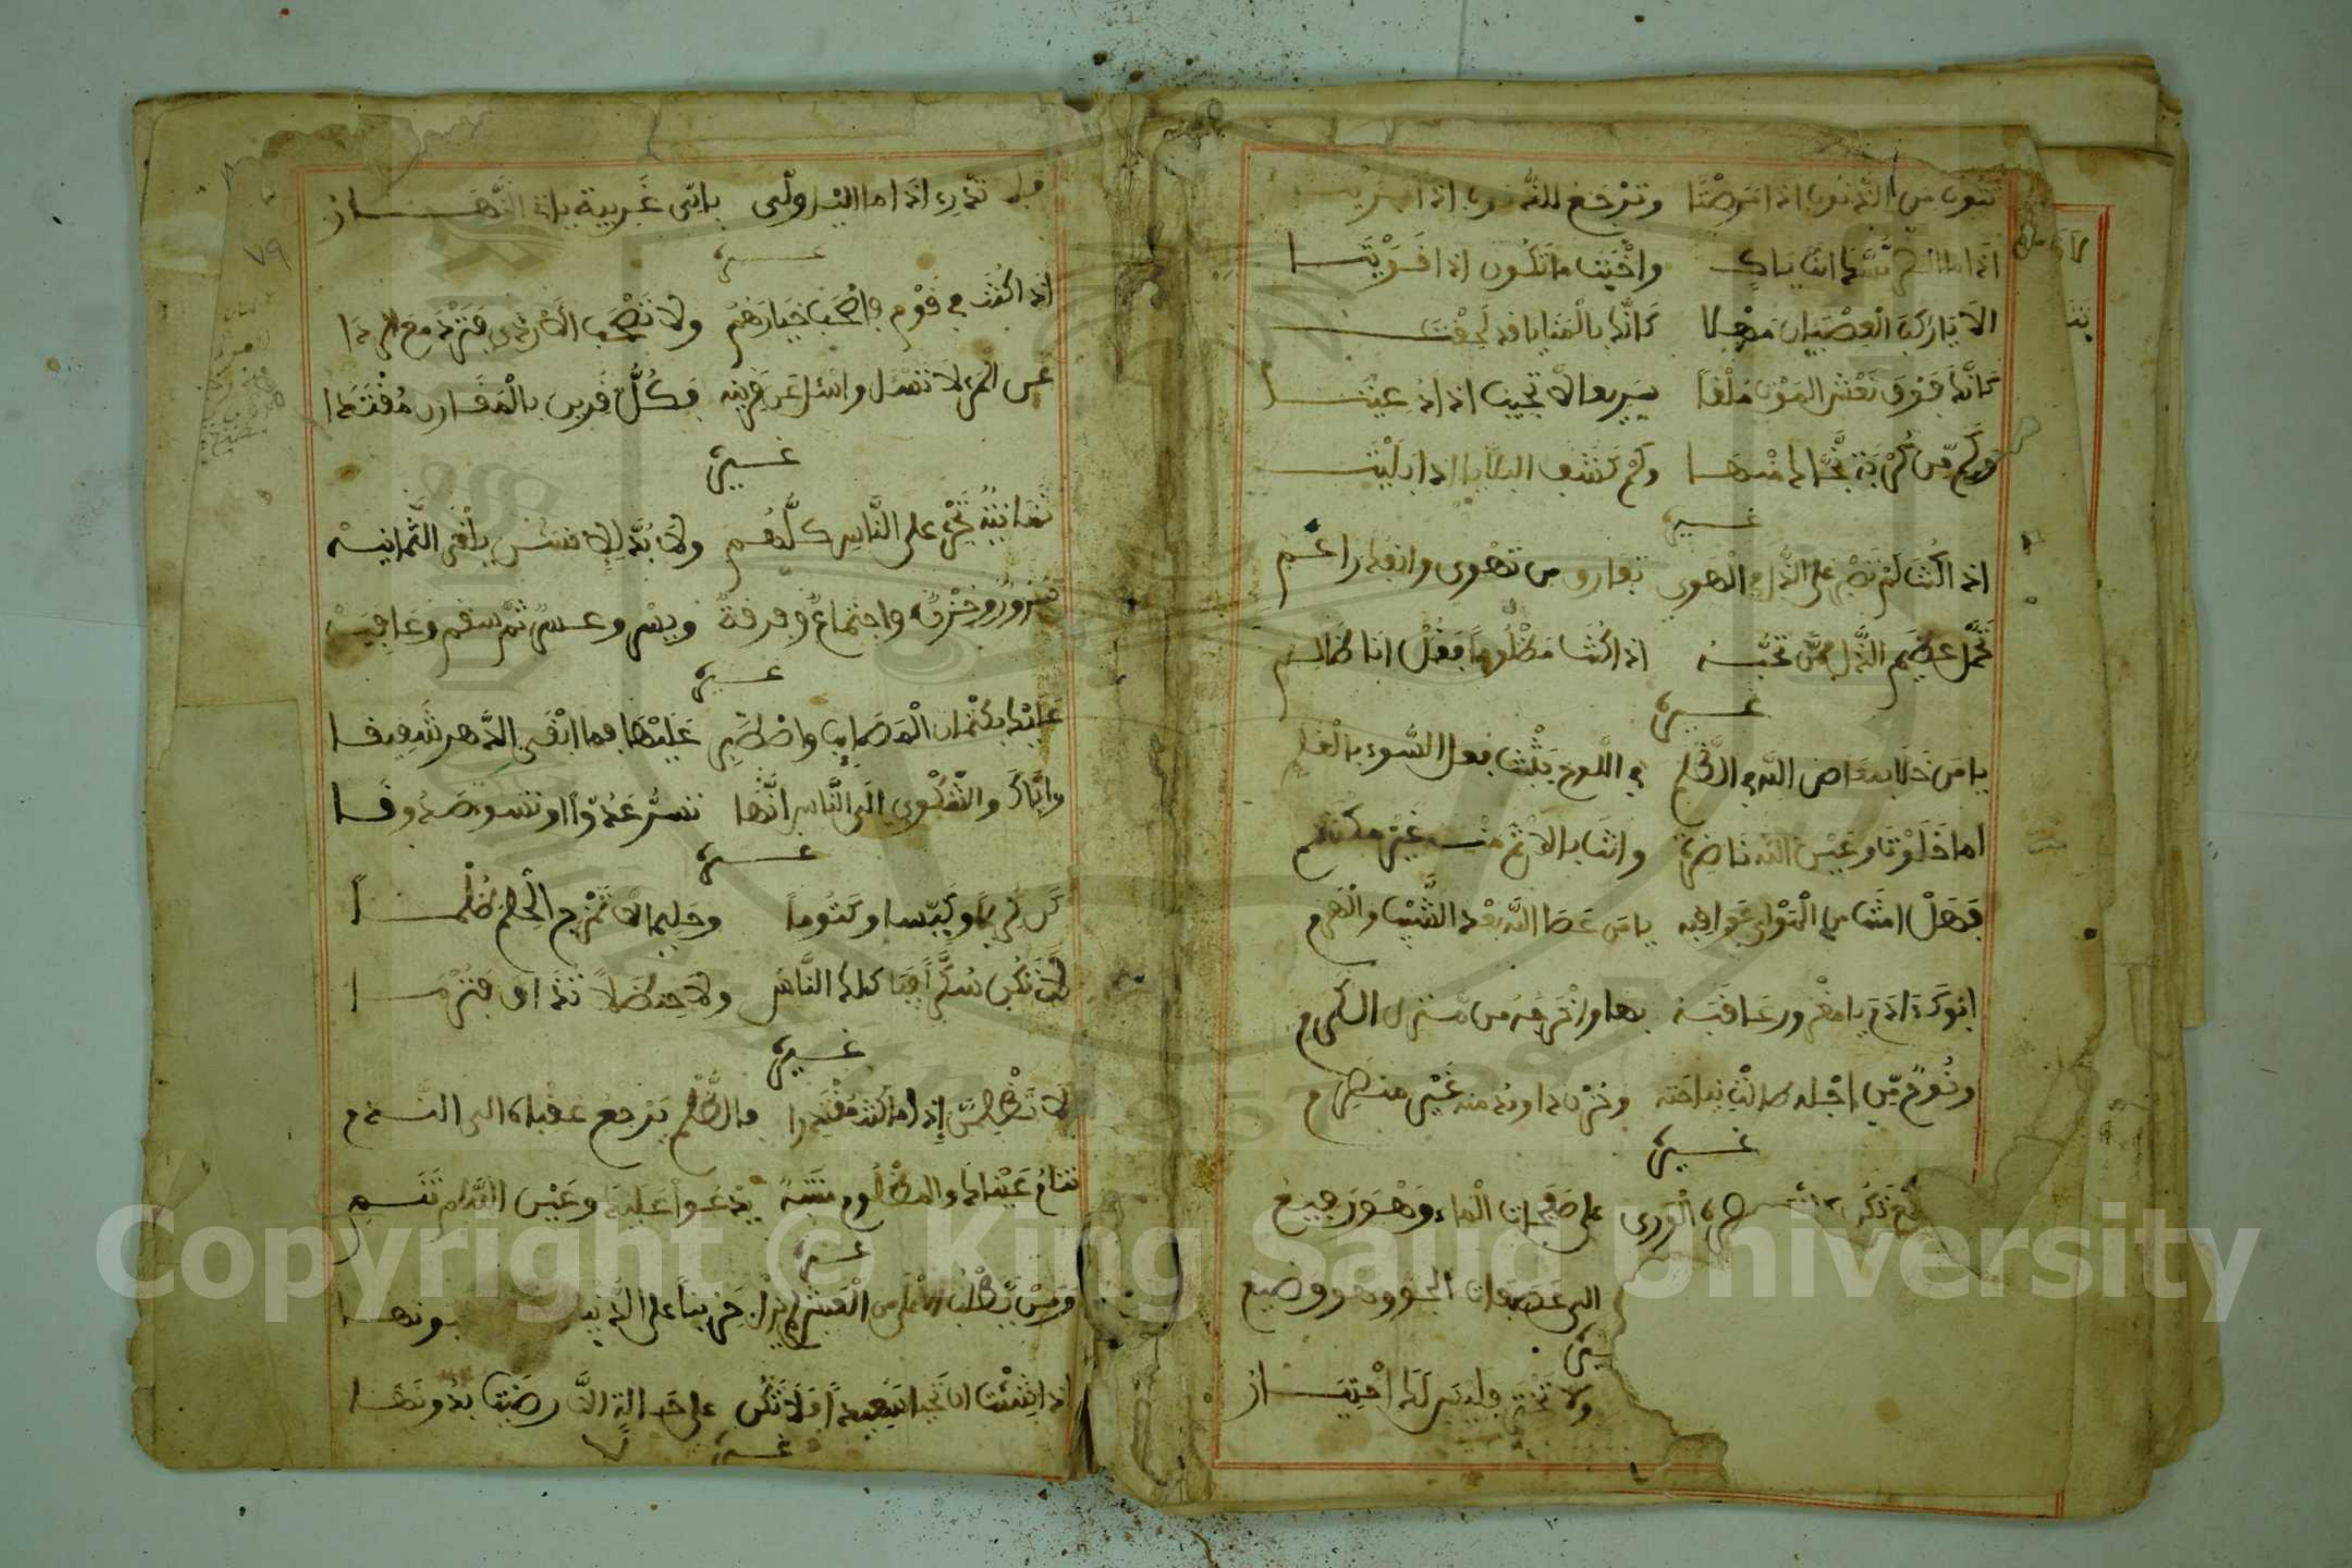 تتوب من الذنوب اذا مرضتا وترجع للذنوب اذا
اذا ما الضر مسك انت باك واخبث ما تكون اذا قويتا
الا يا راكب العصيان مهلا كانك بالمنايا قد لحقت
كانك فوق نعش الموت ملقا سرير ولا تجيب اذا دعيتا
وكم من كربة نجاك منها وكم كشف البلايا اذا بليت
غيره
اذا كنت لم تصبر على الذل في الهوى تفارق من تهوى وانفك راغم
تحمل عظيم الذل ممن تحبه اذا كنت مظلوما فقل انا ظالم
غيره
يا من خلا بمعاص الله في الظلم في اللوح يثبت فعل السوء بالقلم
اما خلوت وعين الله ناضرة وانت بالاثم منه غير مكتتم
فهل امنت من المولى عواقبه يا من عصا الله بعد الشيب والهرم
ابوك ءادم يا مغرور عاقبه بها واخرجه من منزل الكرم
ونوح من اجله طالت نياحته وحزن داوود منه غير منصرم
غيره
الورى على صفحات الماء وهو رفيع
الى عصبات الجو وهو وضيع
غيره
ولا تحزن فليس لك اختيار
تدري اذا ما اليل ولى باي غريبة ياتي النهار
غيره
اذا كنت في قوم فاصحب خيارهم ولا تصحب الاردى فتردى مع الردا
عن المرء لا تسئل واسئل عن قرينه فكل قرين بالمقارن مقتدا
غيره
ثمانية تجري على الناس كلهم ولا بد للانسان يلقى الثمانيه
سرور وحزن واجتماع وفرقة ويسر وعسر ثم سقم وعافيه
غيره
عليك بكتمان المصايب واصطبر عليها فما ابقى الدهر شفيقا
واياك والشكوى الى الناس انها تسر عدوا او تسوء صدوقا
غيره
كن كريما وكيسا وكتوما وحليما لا تمزج الحلم ظلما
لا تكن سكرا فيا كلك الناس ولا حنظلا تذاق فترما
غيره
لا تظلمن اذا ما كنت مقتدرا فالظلم يرجع عقباه الى الندم
تنام عيناك والمظلوم منتبه يدعوا عليك وعين الله لم تنم
غيره
ومن يطلب الاعلى من العيش لم يزل حزينا على الدنيا
اذا شئت ان تحيا سعيدا فلا تكن على حالة الا رضيت بدونها
غيره
٧٩
Copyright © King Saud University